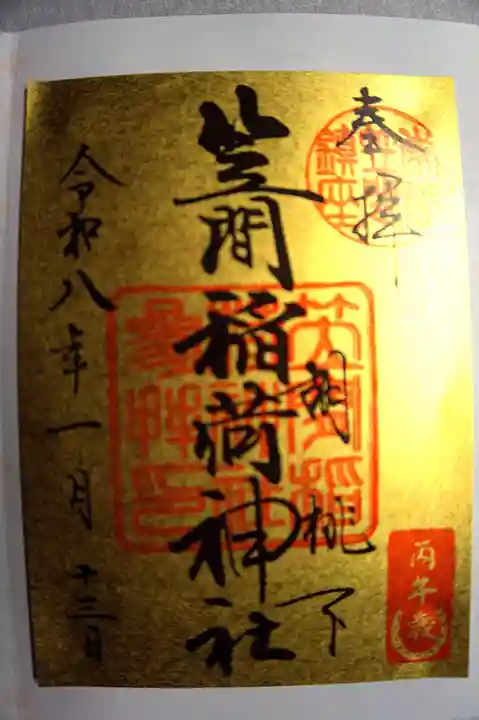 奉拝
胡桃下
笠間稲荷神社
令和八年一月十三日
丙午歳